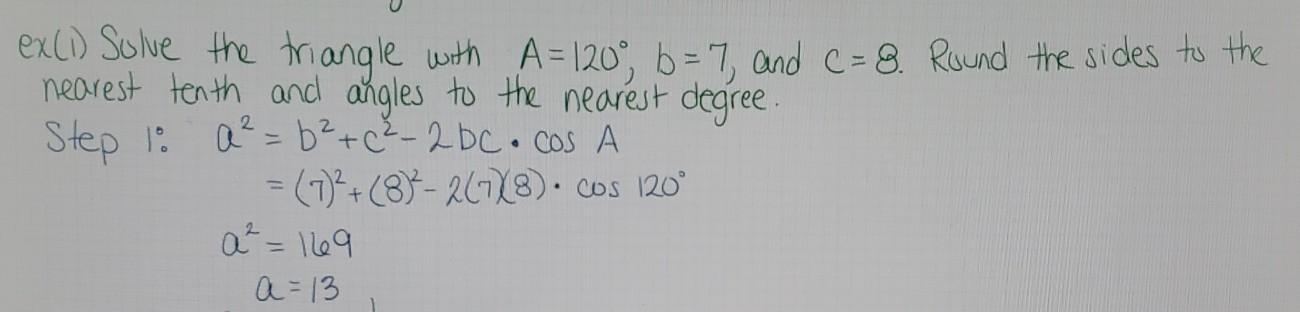 ex(1) Solve the triangle with A=120°, b=7, and c=8. Round the sides to the
nearest tenth and angles to the nearest degree.
Step 1: a² = b²+c²-2bc·cos A
= (7)²+(8)²-2(7)(8)·cos 120°
a² = 169
a=13